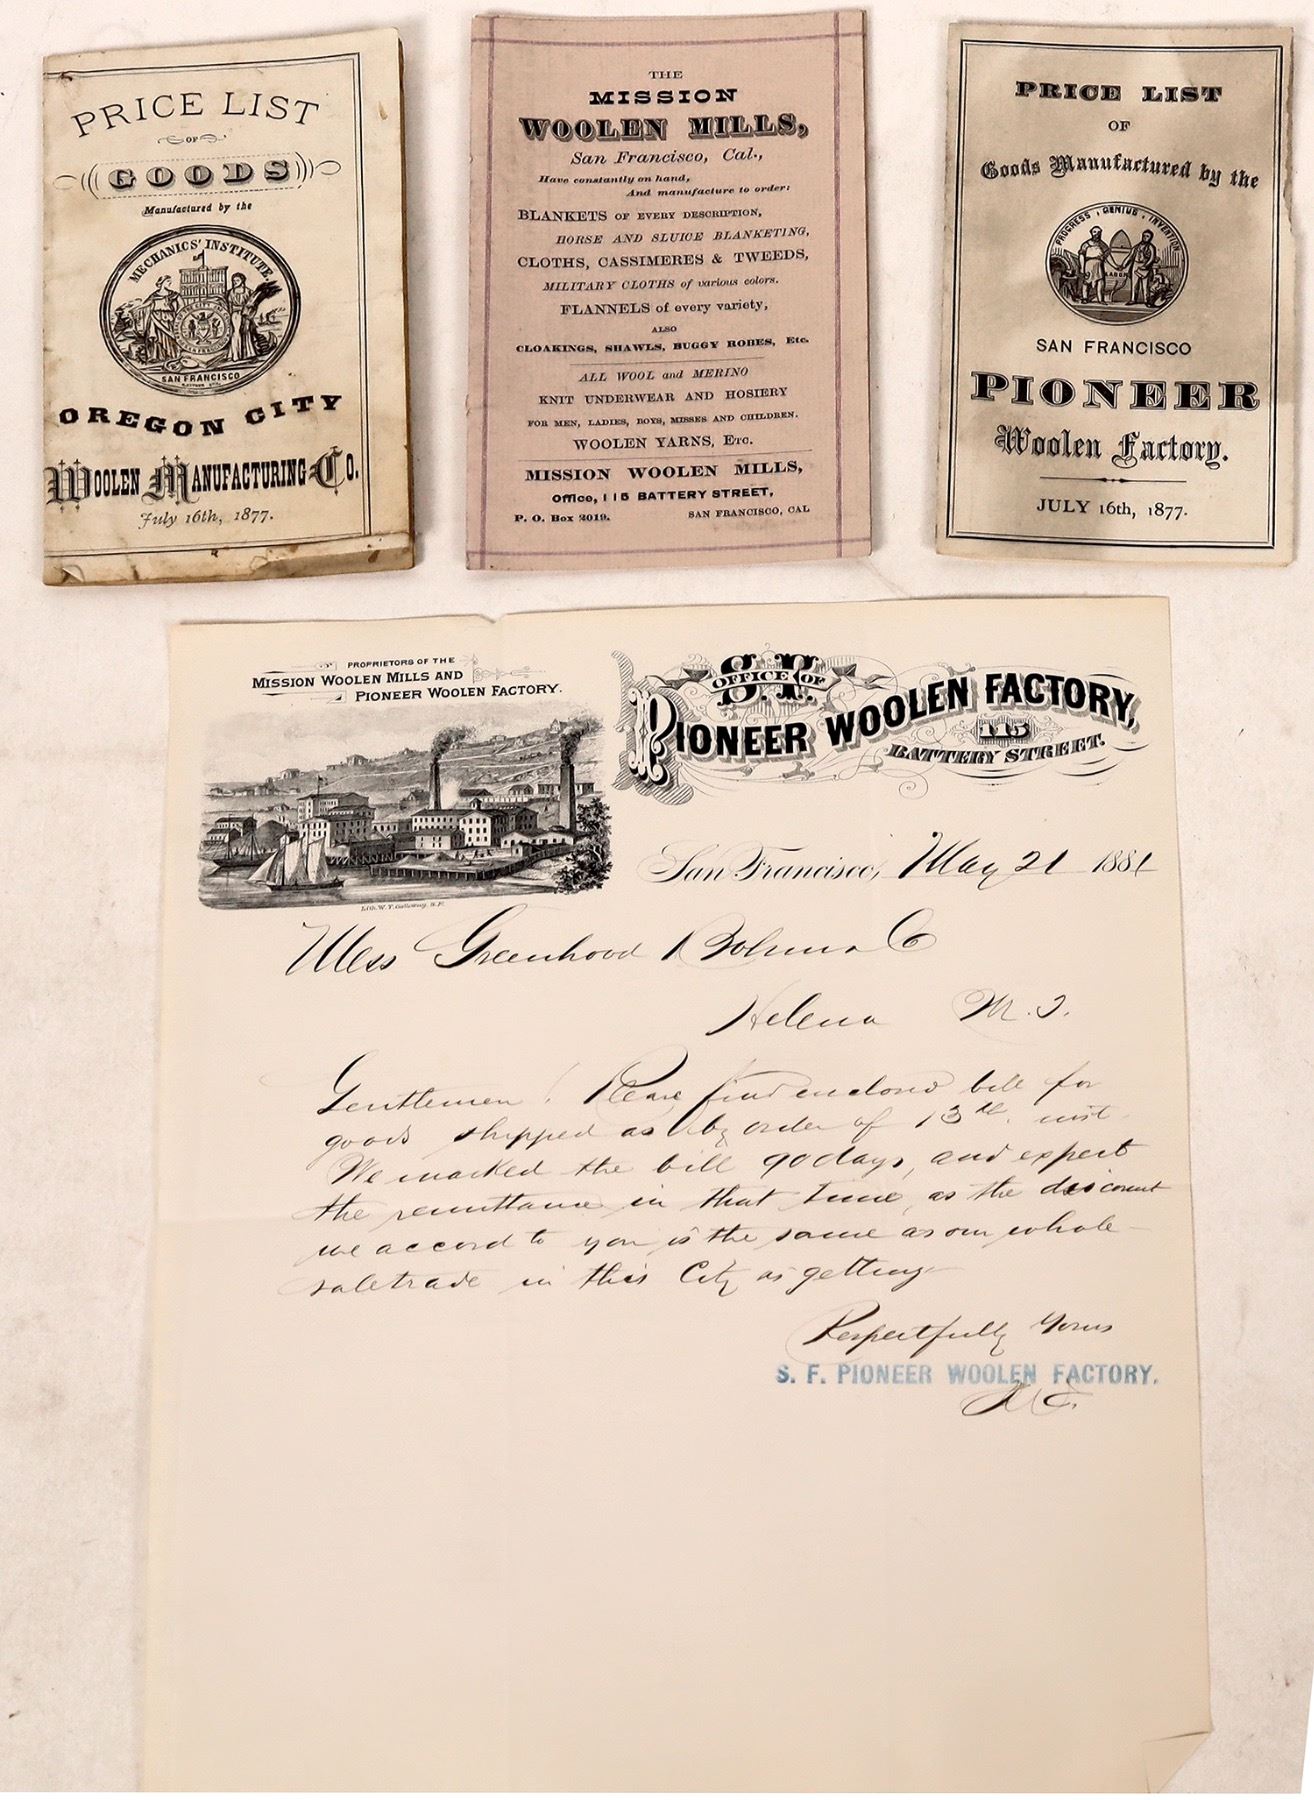 PRICE LIST
OF
GOODS
Manufactured by the
MECHANICS' INSTITUTE.
SAN FRANCISCO
OREGON CITY
WOOLEN MANUFACTURING CO.
July 16th, 1877.
THE
MISSION
WOOLEN MILLS,
San Francisco, Cal.,
Have constantly on hand,
And manufacture to order:
BLANKETS OF EVERY DESCRIPTION,
HORSE AND SLUICE BLANKETING,
CLOTHS, CASSIMERES & TWEEDS,
MILITARY CLOTHS of various colors.
FLANNELS of every variety,
ALSO
CLOAKINGS, SHAWLS, BUGGY ROBES, Etc.
ALL WOOL and MERINO
KNIT UNDERWEAR AND HOSIERY
FOR MEN, LADIES, BOYS, MISSES AND CHILDREN.
WOOLEN YARNS, ETC.
MISSION WOOLEN MILLS,
Office, 115 BATTERY STREET,
P. O. Box 2019. SAN FRANCISCO, CAL
PRICE LIST
OF
Goods Manufactured by the
PROGRESS, GENIUS, INVENTION
LABOR
SAN FRANCISCO
PIONEER
Woolen Factory.
JULY 16th, 1877.
PROPRIETORS OF THE
MISSION WOOLEN MILLS AND
PIONEER WOOLEN FACTORY.
Lith. W. T. Galloway, S.F.
OFFICE OF
S.F.
PIONEER WOOLEN FACTORY,
115
BATTERY STREET.
San Francisco, May 21 1881
Mess Greenhood Bohm & Co
Helena M. T.
Gentlemen! Please find enclosed bill for
goods shipped as by order of 13th inst
We marked the bill 90 days, and expect
the remittance in that time, as the discount
we accord to you is the same as our whole-
saletrade in this City is getting
Respectfully Yours
S. F. PIONEER WOOLEN FACTORY.